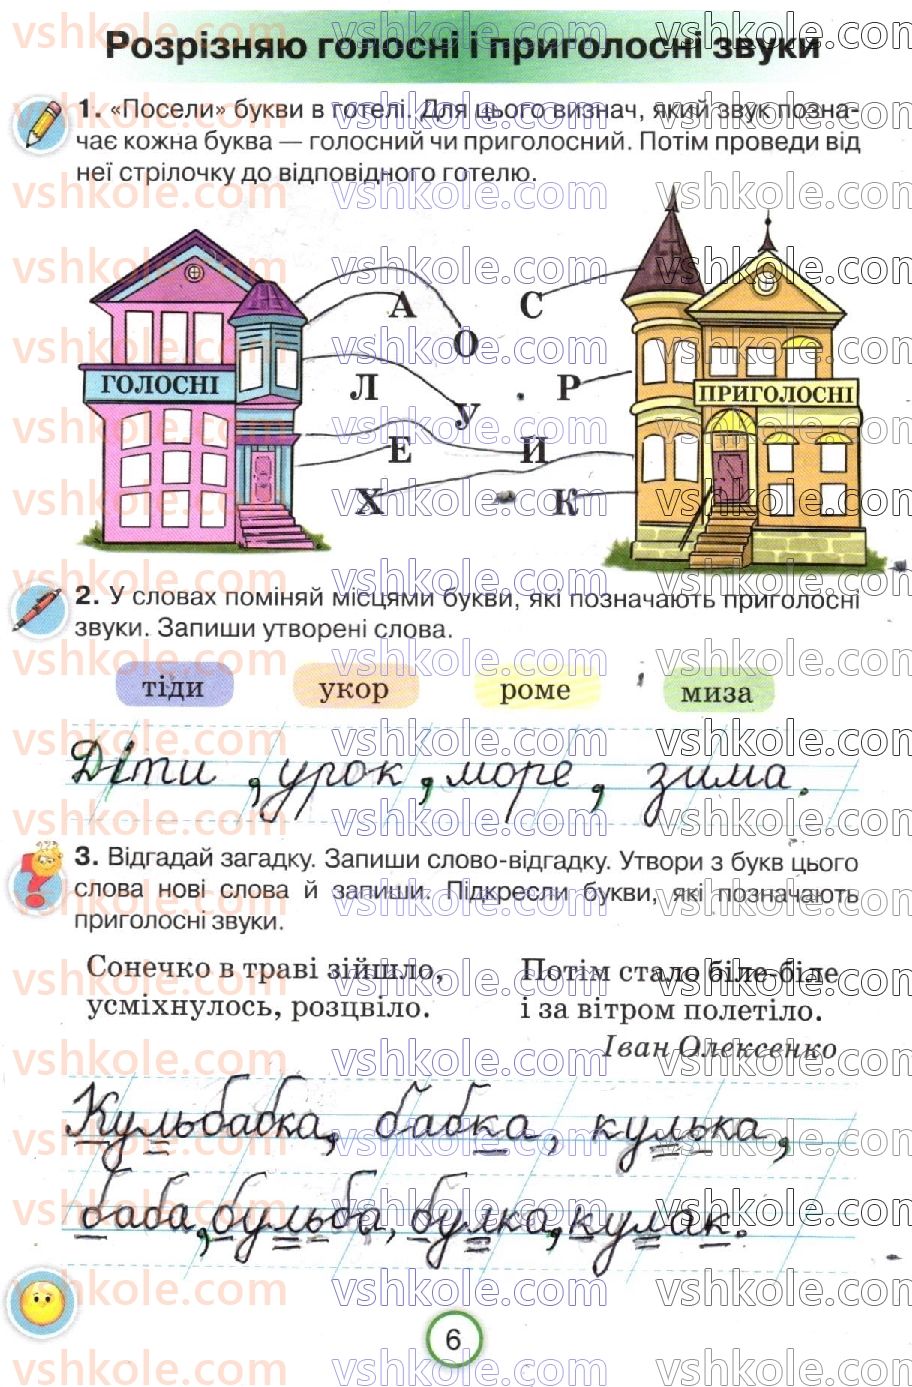 Розрізняю голосні і приголосні звуки
1. «Посели» букви в готелі. Для цього визнач, який звук позна-
чає кожна буква — голосний чи приголосний. Потім проведи від
неї стрілочку до відповідного готелю.
А С
О
ГОЛОСНІ Л Р ПРИГОЛОСНІ
У
Е И
Х К
2. У словах поміняй місцями букви, які позначають приголосні
звуки. Запиши утворені слова.
тіди укор роме миза
Діти, урок, море, зима.
3. Відгадай загадку. Запиши слово-відгадку. Утвори з букв цього
слова нові слова й запиши. Підкресли букви, які позначають
приголосні звуки.
Сонечко в траві зійшло,
усміхнулось, розцвіло.
Потім стало біле-біле
і за вітром полетіло.
Іван Олексенко
Кульбабка, бабка, кулька,
баба, бульба, булка, кулак.
6
vshkole.com